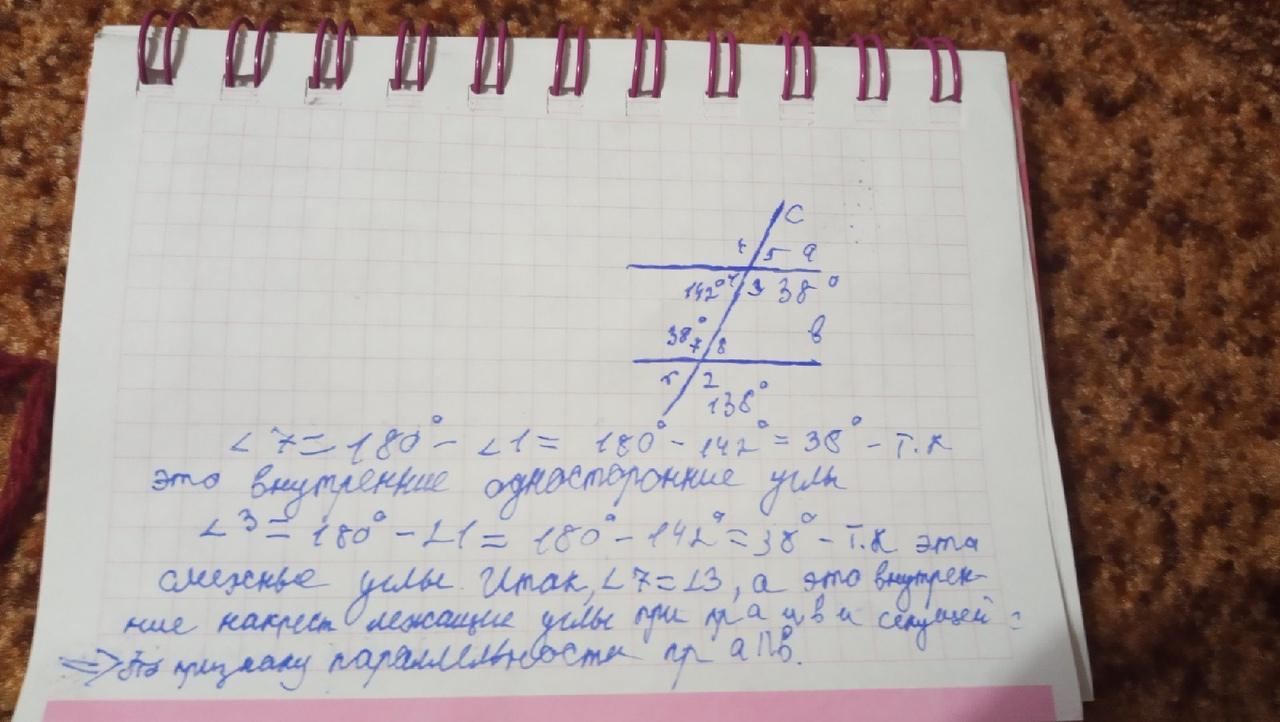 c
4 5 a
142° 1 3 38°
38° в
7 8
6 2
138°
∠7=180°-∠1= 180°-142°=38° - т.к
это внутренние односторонние углы
∠3=180°-∠1=180°-142°=38°-т.к эта
смежные углы. Итак, ∠7=∠3, а это внутрен-
ние накрест лежащие углы при пр а и в и секущей =
=> По признаку параллельности пр а||в.